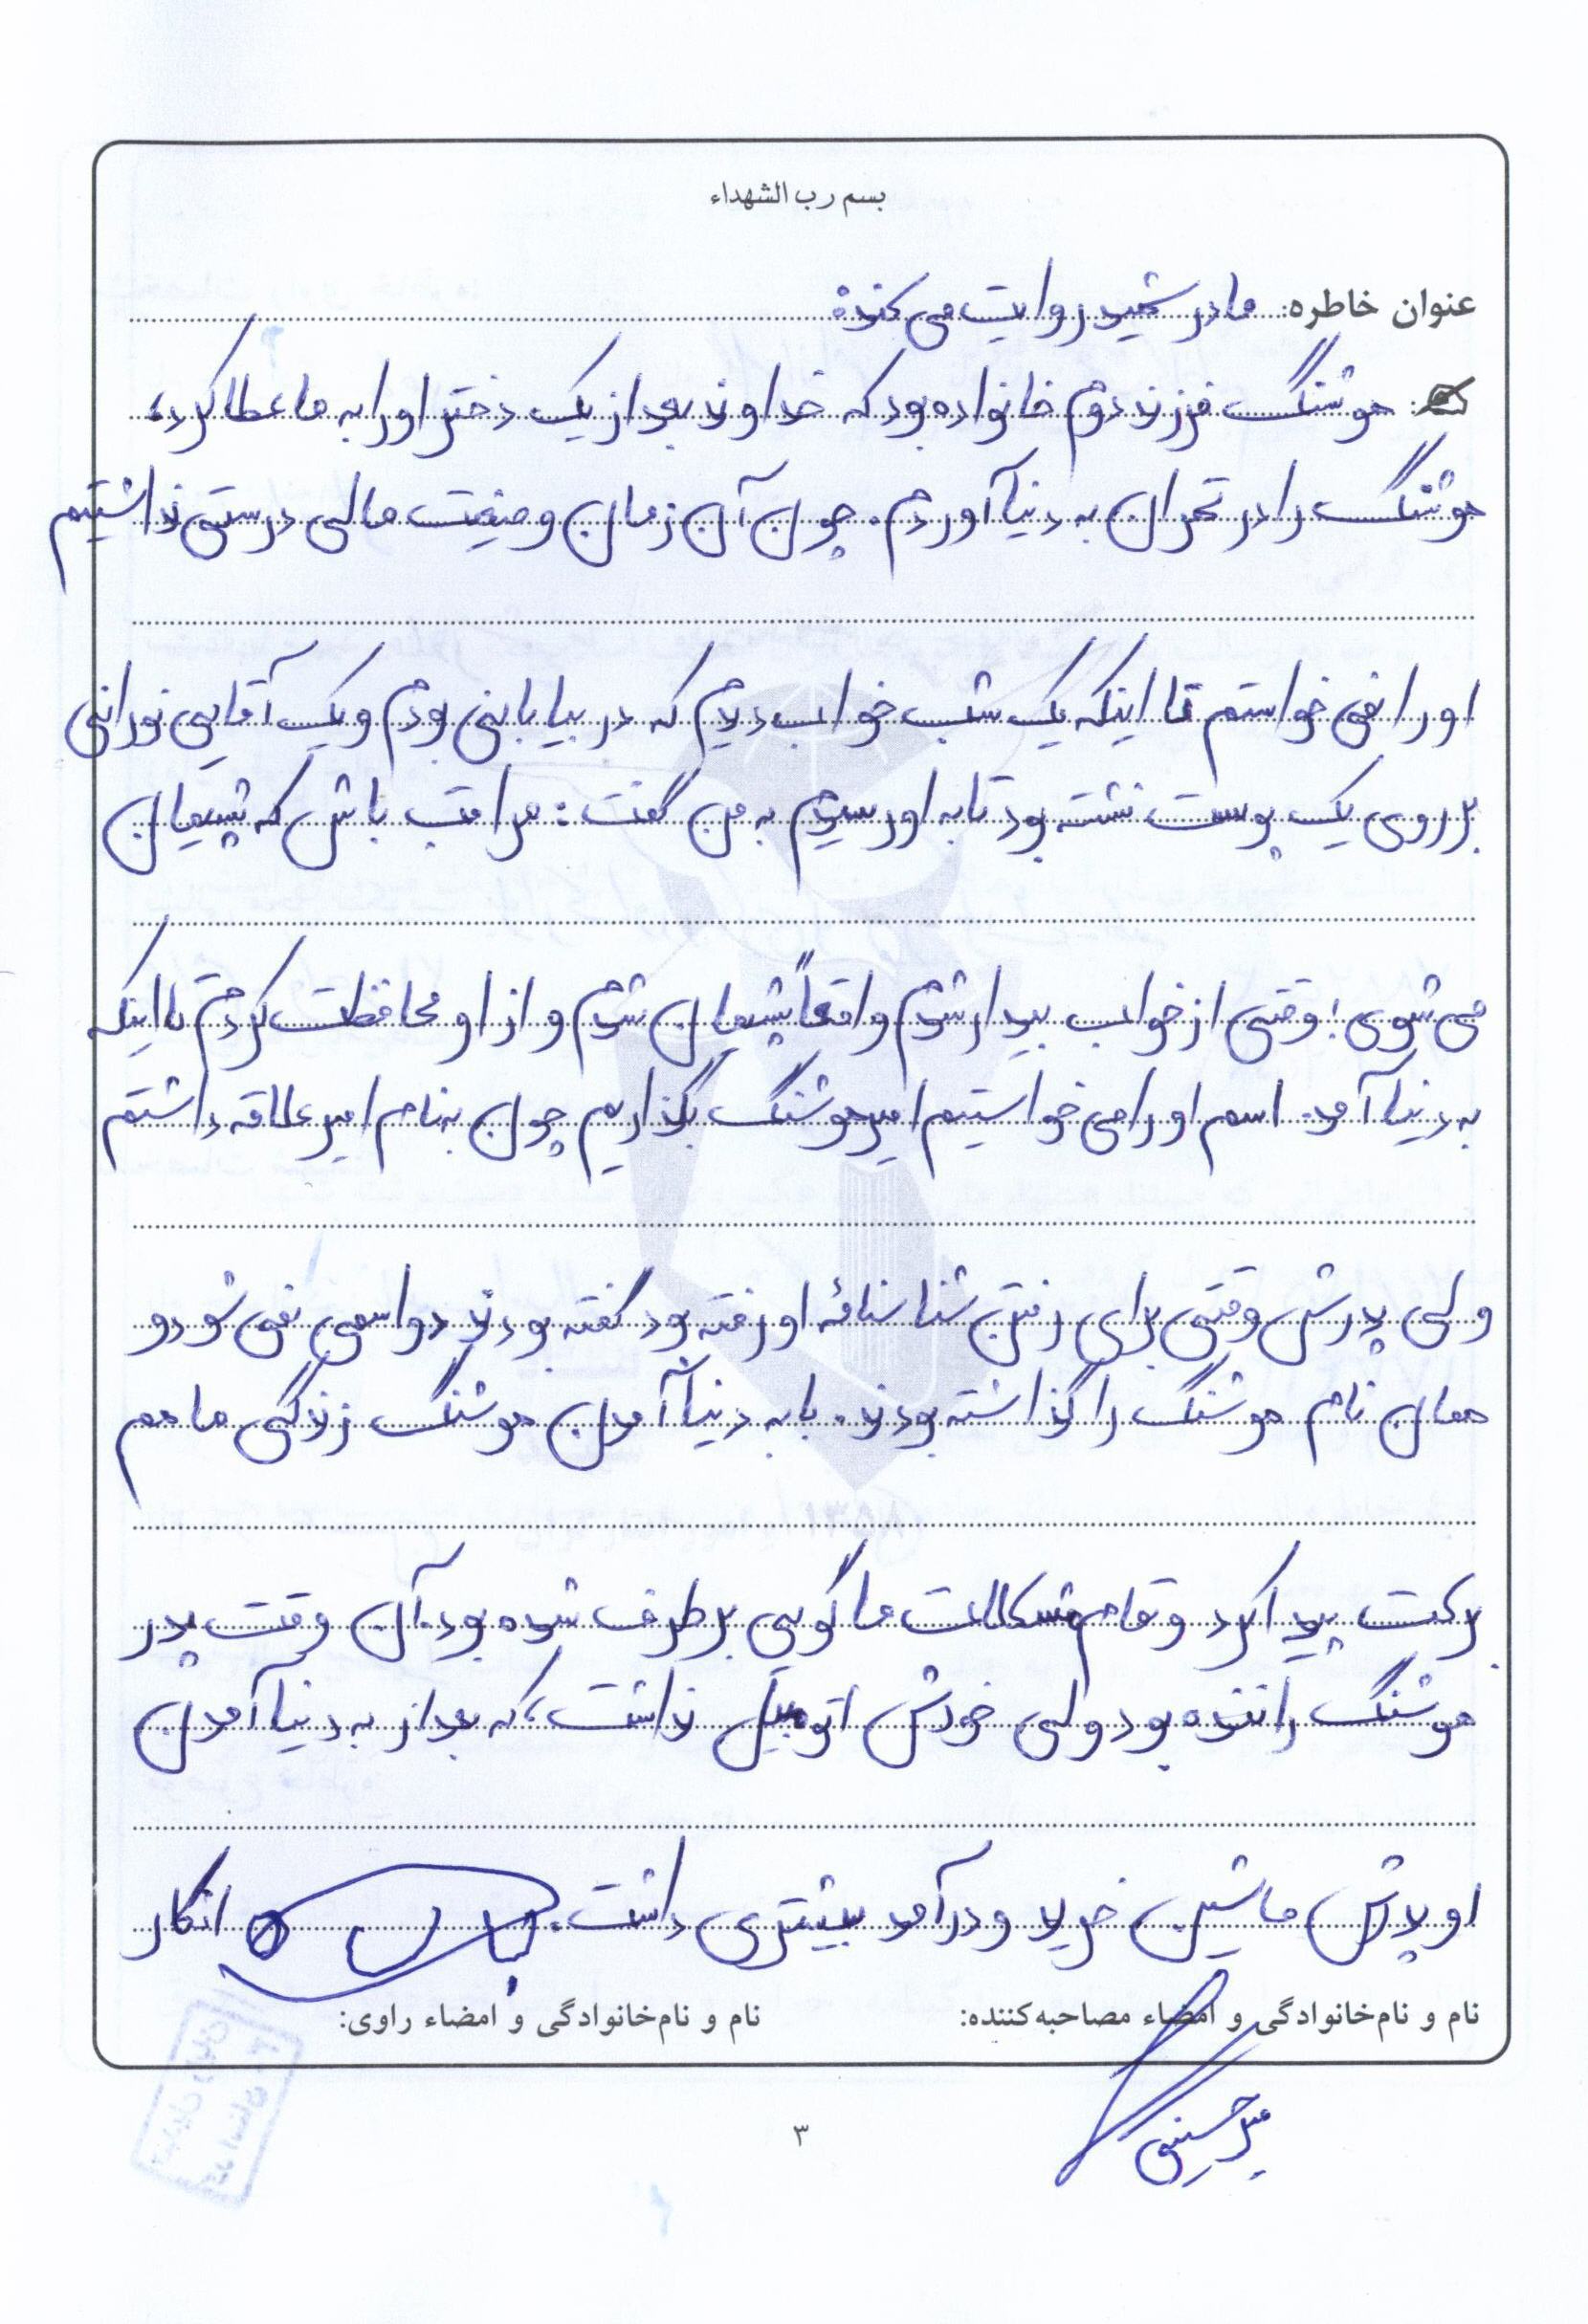 بسم رب الشهداء
عنوان خاطره: مادر شهید روایت می کند:
هوشنگ فرزند دوم خانواده بود که خداوند بعد از یک دختر او را به ما عطا کرد،
هوشنگ را در تهران به دنیا آوردم. چون آن زمان وضعیت مالی درستی نداشتیم
او را نمی خواستم تا اینکه یک شب خواب دیدم که در بیابانی بودم و یک آقایی نورانی
بر روی یک پوست نشته بود تا به او رسیدم به من گفت: مراقب باش که پشیمان
می شوی! وقتی از خواب بیدار شدم واقعاً پشیمان شدم و از او محافظت کردم تا اینکه
به دنیا آمد. اسم او را می خواستیم امیرهوشنگ بگذاریم چون به نام امیر علاقه داشتم
ولی پدرش وقتی برای رفتن شناسنامهٔ او رفته بود گفته بودند دو اسمی نمی شود و
همان نام هوشنگ را گذاشته بودند. با به دنیا آمدن هوشنگ زندگی ما هم
برکت پیدا کرد و تمام مشکلات ما گویی برطرف شده بود. آن وقت پدر
هوشنگ راننده بود ولی خودش اتومبیل نداشت، که بعد از به دنیا آمدن
او پدرش ماشین خرید و درآمد بیشتری داشت. انگار
نام و نام‌خانوادگی و امضاء مصاحبه‌کننده: نام و نام‌خانوادگی و امضاء راوی:
میرحسینی
۳